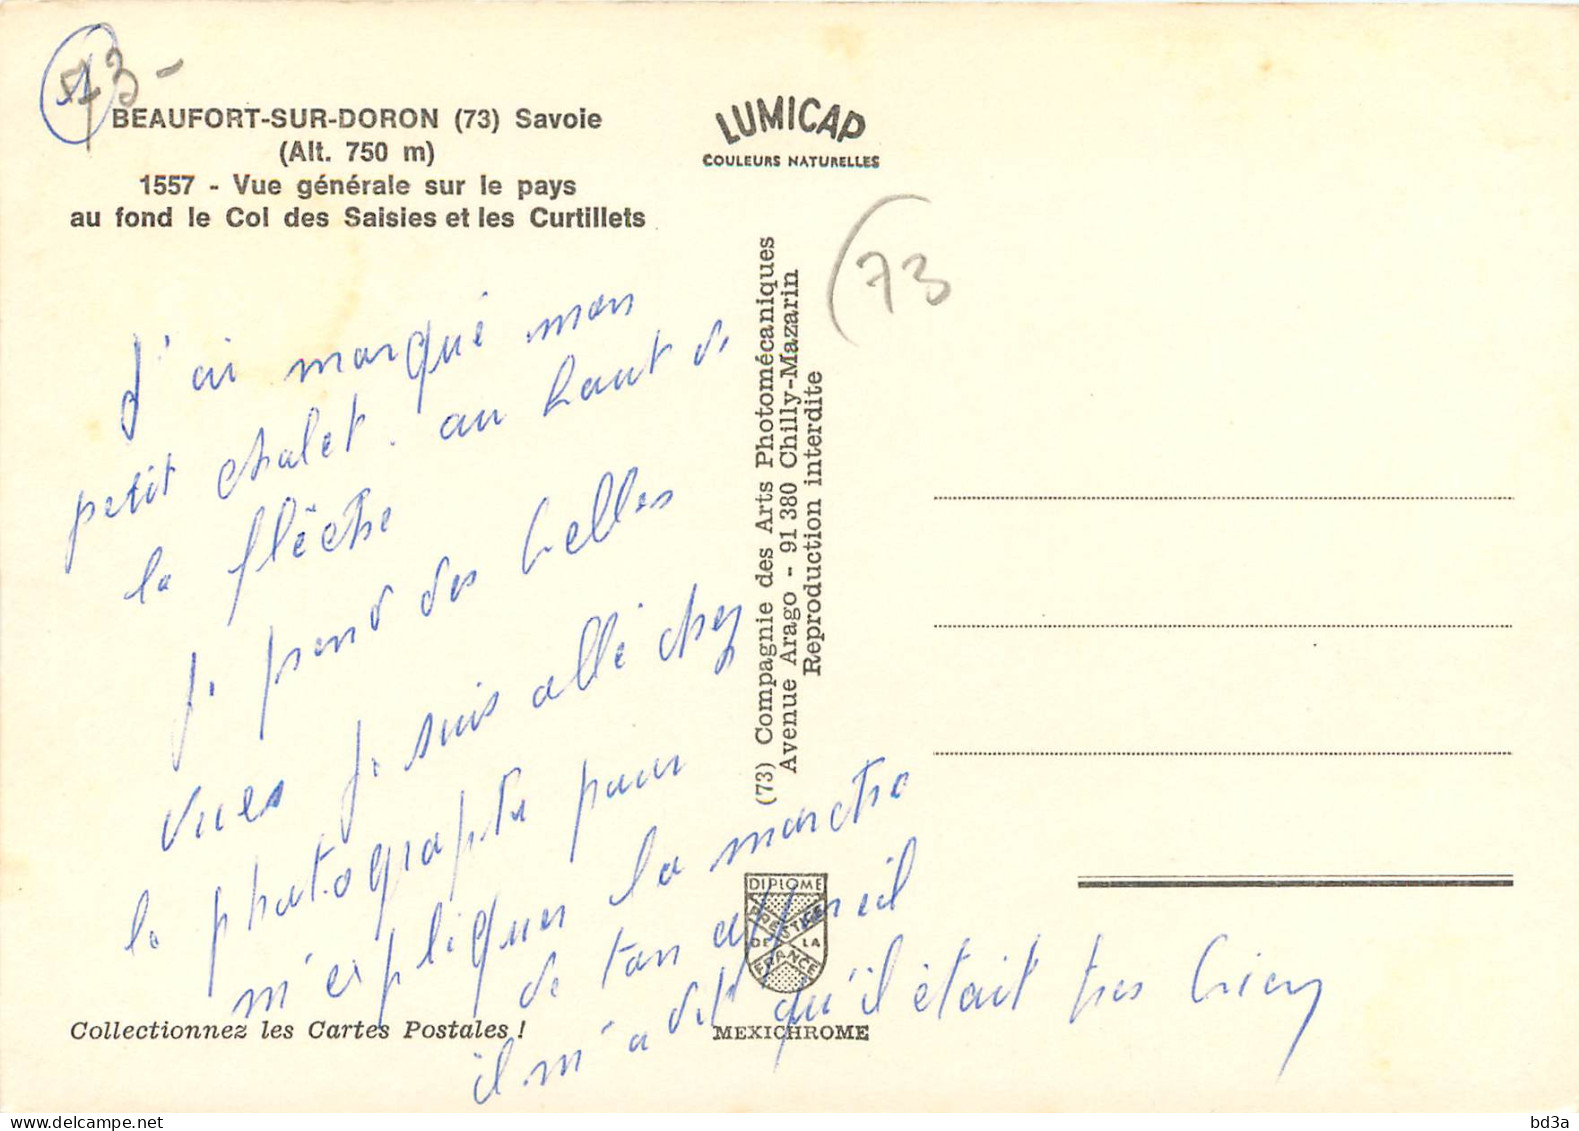 73-
1
BEAUFORT-SUR-DORON (73) Savoie
(Alt. 750 m)
1557 - Vue générale sur le pays
au fond le Col des Saisies et les Curtillets
LUMICAP
COULEURS NATURELLES
73
J'ai marqué mon
petit chalet. au haut de
la flêche
je prend des belles
vues je suis allé chez
le photographe pour
m'expliquer la marche
de ton appareil
il m'a dit qu'il était très bien
(73) Compagnie des Arts Photomécaniques
Avenue Arago - 91 380 Chilly-Mazarin
Reproduction interdite
DIPLOME
PRESTIGE
DE LA
FRANCE
Collectionnez les Cartes Postales !
MEXICHROME
www.delcampe.net
bd3a